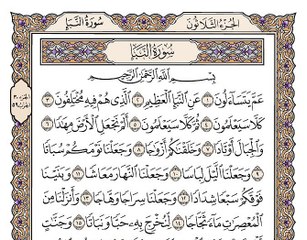 الجزء الثلاثون سورة النبإ
سورة النبإ
بسم الله الرحمن الرحيم
عم يتساءلون ١ عن النبإ العظيم ٢ الذي هم فيه مختلفون ٣
كلا سيعلمون ٤ ثم كلا سيعلمون ٥ ألم نجعل الأرض مهادا ٦
والجبال أوتادا ٧ وخلقناكم أزواجا ٨ وجعلنا نومكم سباتا
٩ وجعلنا الليل لباسا ١٠ وجعلنا النهار معاشا ١١ وبنينا
فوقكم سبعا شدادا ١٢ وجعلنا سراجا وهاجا ١٣ وأنزلنا من
المعصرات ماء ثجاجا ١٤ لنخرج به حبا ونباتا ١٥ وجنات